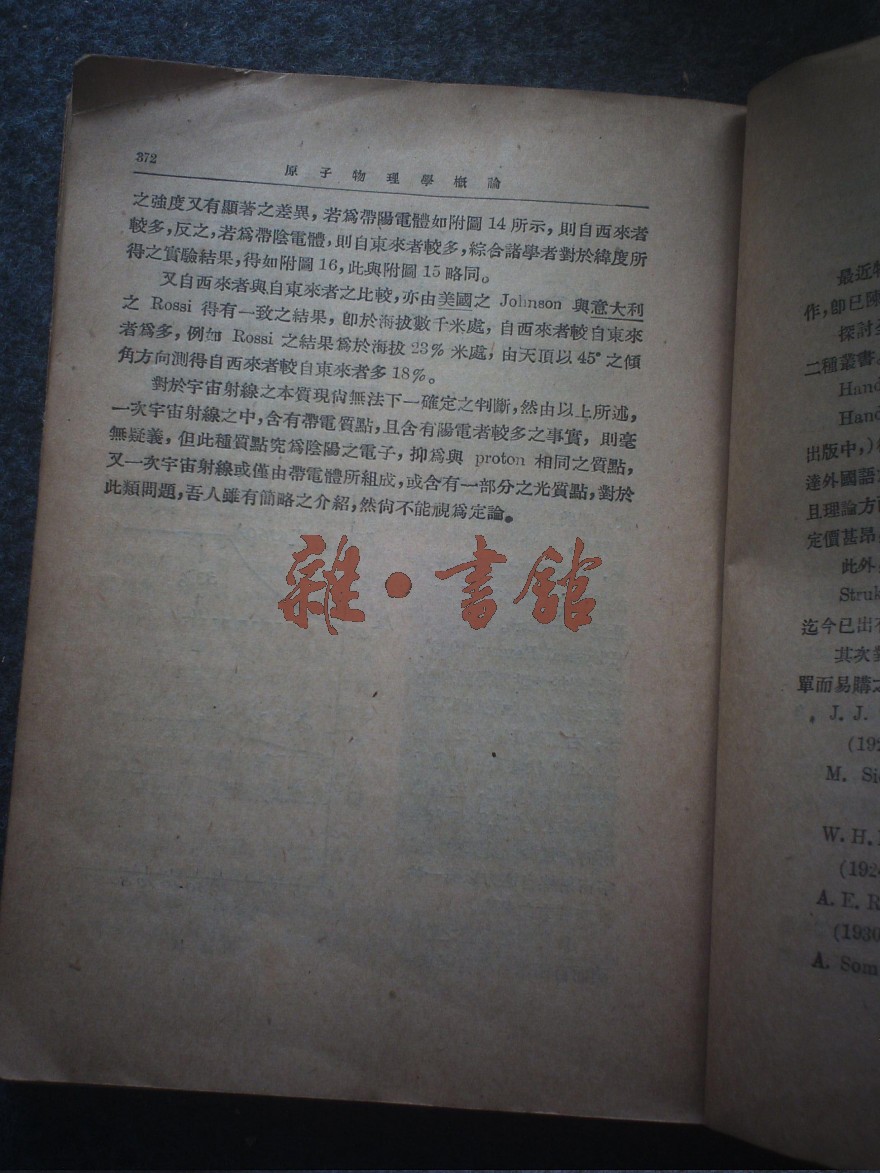 372
原子物理學概論
之強度又有顯著之差異，若爲帶陽電體如附圖 14 所示，則自西來者
較多，反之，若爲帶陰電體，則自東來者較多，綜合諸學者對於緯度所
得之實驗結果，得如附圖 16，此與附圖 15 略同。
又自西來者與自東來者之比較，亦由美國之 Johnson 與意大利
之 Rossi 得有一致之結果，卽於海拔數千米處，自西來者較自東來
者爲多，例如 Rossi 之結果爲於海拔 23% 米處，由天頂以 45° 之傾
角方向測得自西來者較自東來者多 18%。
對於宇宙射線之本質現尙無法下一確定之判斷，然由以上所述，
一次宇宙射線之中，含有帶電質點，且含有陽電者較多之事實，則毫
無疑義，但此種質點究爲陰陽之電子，抑爲與 proton 相同之質點，
又一次宇宙射線或僅由帶電體所組成，或含有一部分之光質點，對於
此類問題，吾人雖有簡略之介紹，然尙不能視爲定論。
雜·書館
最近
作，卽已陳
探討
二種叢書
Hand
Hand
出版中，）
達外國語
且理論方
定價甚昂
此外
Struk
迄今已出
其次
單而易購之
J. J.
(192
M. Si
W. H.
(192
A. E. R
(1930
A. Som